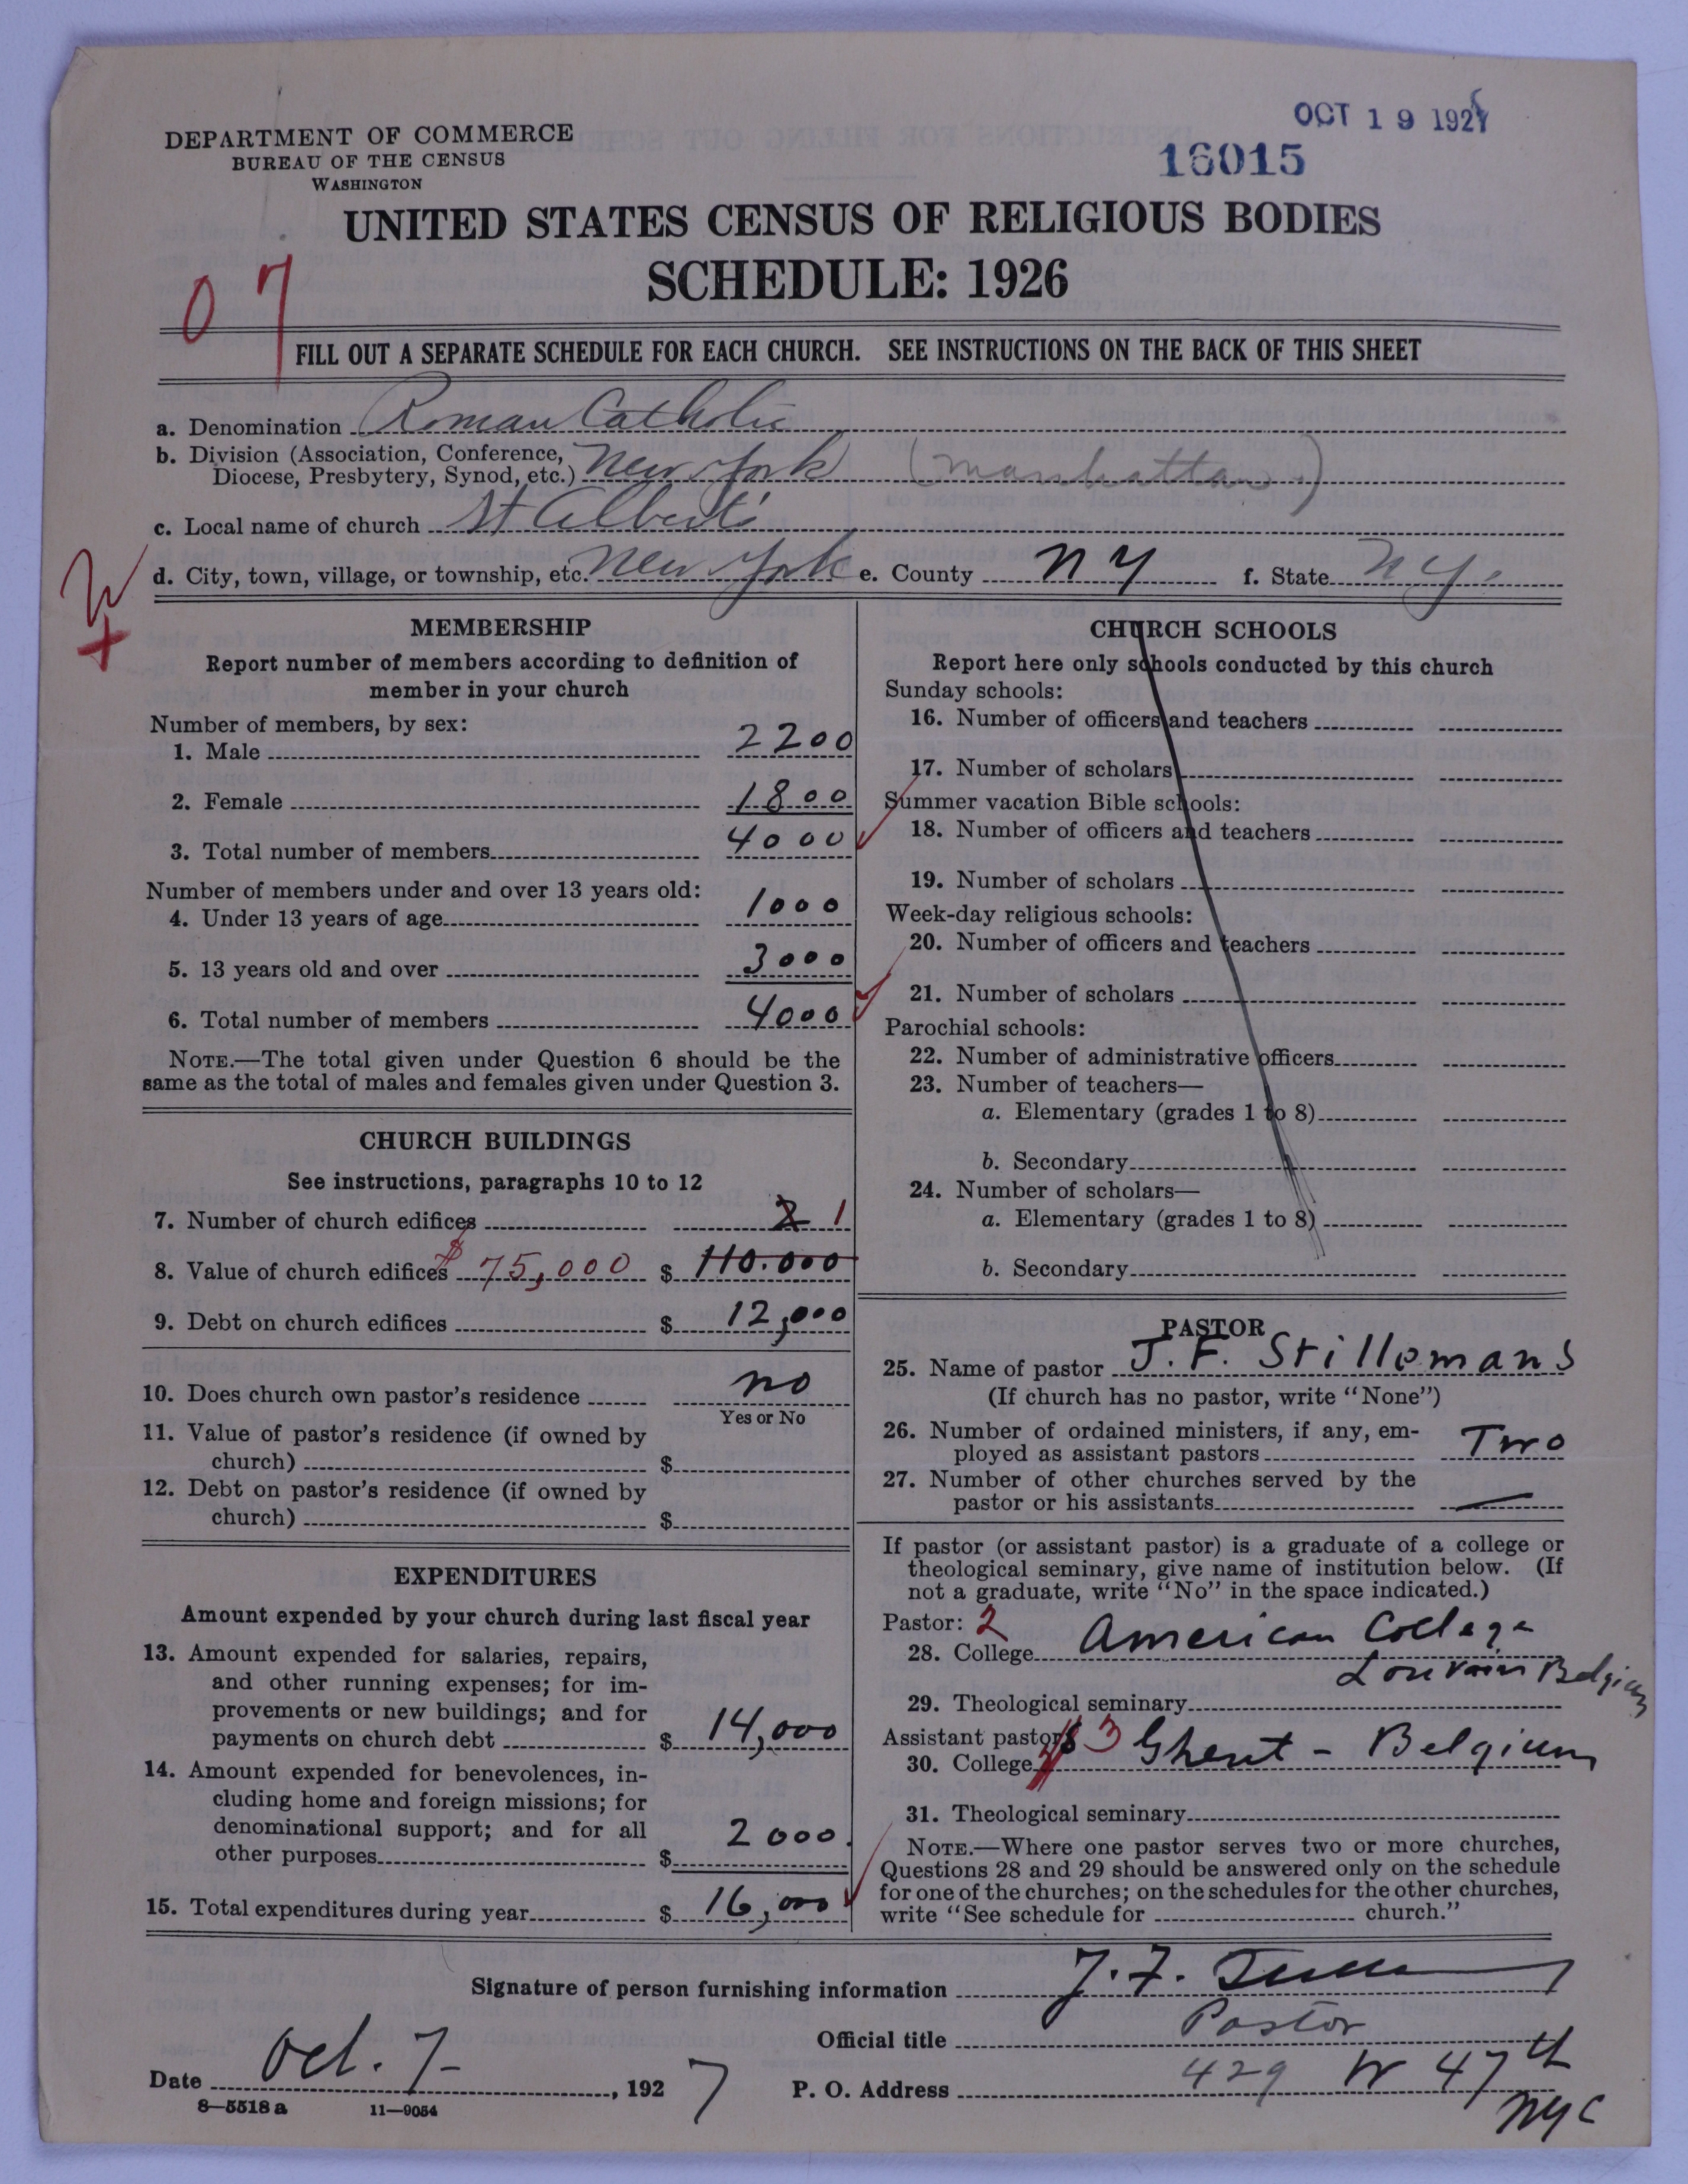 OCT 19 1927
16015
DEPARTMENT OF COMMERCE
BUREAU OF THE CENSUS
WASHINGTON
UNITED STATES CENSUS OF RELIGIOUS BODIES
SCHEDULE: 1926
07
FILL OUT A SEPARATE SCHEDULE FOR EACH CHURCH. SEE INSTRUCTIONS ON THE BACK OF THIS SHEET
a. Denomination Roman Catholic
b. Division (Association, Conference,
Diocese, Presbytery, Synod, etc.) New York (Manhattan)
c. Local name of church St Albert's
d. City, town, village, or township, etc. New York e. County NY f. State N.Y.
MEMBERSHIP
Report number of members according to definition of
member in your church
Number of members, by sex:
1. Male 2200
2. Female 1800
3. Total number of members 4000
Number of members under and over 13 years old:
4. Under 13 years of age 1000
5. 13 years old and over 3000
6. Total number of members 4000
NOTE.—The total given under Question 6 should be the
same as the total of males and females given under Question 3.
CHURCH BUILDINGS
See instructions, paragraphs 10 to 12
7. Number of church edifices 2 1
8. Value of church edifices $75,000 $ 110.000
9. Debt on church edifices $ 12,000
10. Does church own pastor's residence no
Yes or No
11. Value of pastor's residence (if owned by
church) $
12. Debt on pastor's residence (if owned by
church) $
EXPENDITURES
Amount expended by your church during last fiscal year
13. Amount expended for salaries, repairs,
and other running expenses; for im-
provements or new buildings; and for
payments on church debt $ 14,000
14. Amount expended for benevolences, in-
cluding home and foreign missions; for
denominational support; and for all
other purposes $ 2000.
15. Total expenditures during year $ 16,000
CHURCH SCHOOLS
Report here only schools conducted by this church
Sunday schools:
16. Number of officers and teachers
17. Number of scholars
Summer vacation Bible schools:
18. Number of officers and teachers
19. Number of scholars
Week-day religious schools:
20. Number of officers and teachers
21. Number of scholars
Parochial schools:
22. Number of administrative officers
23. Number of teachers—
a. Elementary (grades 1 to 8)
b. Secondary
24. Number of scholars—
a. Elementary (grades 1 to 8)
b. Secondary
PASTOR
25. Name of pastor J. F. Stillemans
(If church has no pastor, write "None")
26. Number of ordained ministers, if any, em-
ployed as assistant pastors Two
27. Number of other churches served by the
pastor or his assistants —
If pastor (or assistant pastor) is a graduate of a college or
theological seminary, give name of institution below. (If
not a graduate, write "No" in the space indicated.)
Pastor: 2
28. College American College
Louvain Belgium
29. Theological seminary
Assistant pastors 3
30. College Ghent - Belgium
31. Theological seminary
NOTE.—Where one pastor serves two or more churches,
Questions 28 and 29 should be answered only on the schedule
for one of the churches; on the schedules for the other churches,
write "See schedule for church."
Signature of person furnishing information J. F.
Official title Pastor
Date Oct. 7-, 1927 P. O. Address 429 W 47th
NYC
8—5518 a 11—9054